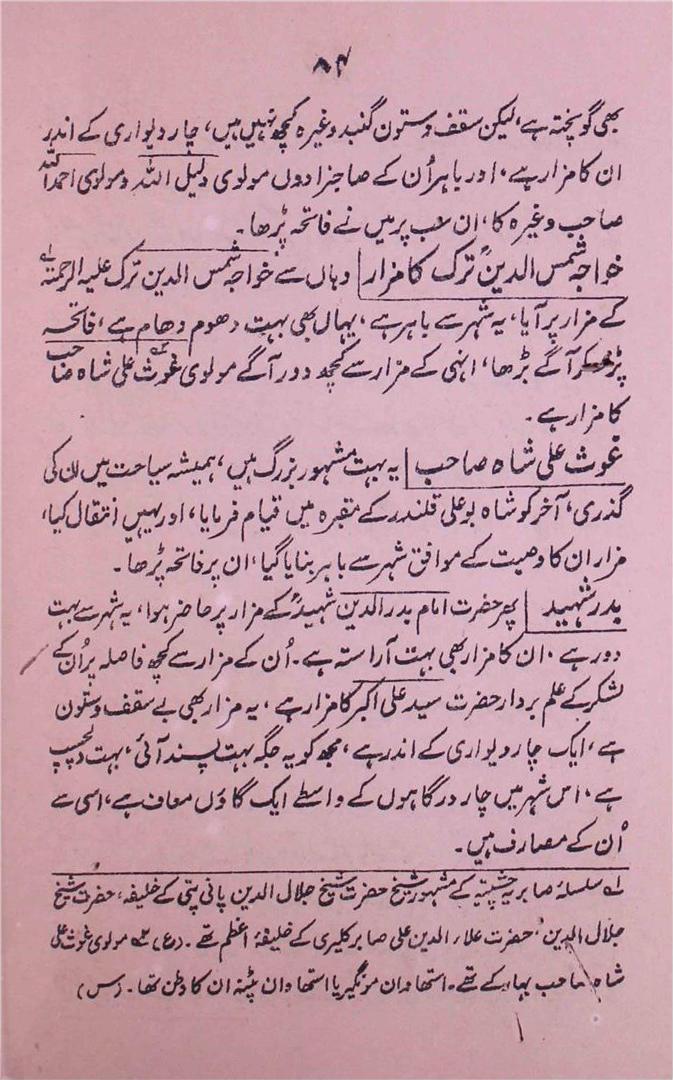 ۸۴
بھی گو پختہ ہے، لیکن سقف و ستون گنبد وغیرہ کچھ نہیں ہیں، چار دیواری کے اندر
ان کا مزار ہے، اور باہر اُن کے صاحبزادوں مولوی دلیل اللہ و مولوی احمد اللہ
صاحب وغیرہ کا، ان سب پر میں نے فاتحہ پڑھا۔
خواجہ شمس الدینؒ ترک کا مزار | وہاں سے خواجہ شمس الدین ترک علیہ الرحمتہ لے
کے مزار پر آیا، یہ شہر سے باہر ہے، یہاں بھی بہت دھوم دھام ہے، فاتحہ
پڑھکر آگے بڑھا، انہی کے مزار سے کچھ دور آگے مولوی غوث علی شاہ صاحب
کا مزار ہے۔
غوث علی شاہ صاحب | یہ بہت مشہور بزرگ ہیں، ہمیشہ سیاحت میں ان کی
گذری، آخر کو شاہ بو علی قلندر کے مقبرہ میں قیام فرمایا، اور یہیں انتقال کیا،
مزار ان کا وصیت کے موافق شہر سے باہر بنایا گیا، ان پر فاتحہ پڑھا۔
بدر شہید | پھر حضرت امام بدر الدین شہیدؒ کے مزار پر حاضر ہوا، یہ شہر سے بہت
دور ہے، ان کا مزار بھی بہت آراستہ ہے۔ اُن کے مزار سے کچھ فاصلہ پر اُن کے
لشکر کے علم بردار حضرت سید علی اکبر کا مزار ہے، یہ مزار بھی بے سقف و ستون
ہے، ایک چار دیواری کے اندر ہے، مجھ کو یہ جگہ بہت پسند آئی، بہت دلچسپ
ہے، اس شہر میں چار درگاہوں کے واسطے ایک گاؤں معاف ہے، اسی سے
اُن کے مصارف ہیں۔
لے سلسلۂ صابریہ چشتیہ کے مشہور شیخ حضرت شیخ جلال الدین پانی پتی کے خلیفہ، حضرت شیخ
جلال الدین، حضرت علاء الدین علی صابر کلیری کے خلیفۂ اعظم تھے۔ (ع) ۲ مولوی غوث علی
شاہ صاحب بہار کے تھے۔ استھاوان مونگیر یا استھاوان پٹنہ ان کا وطن تھا۔ (س)